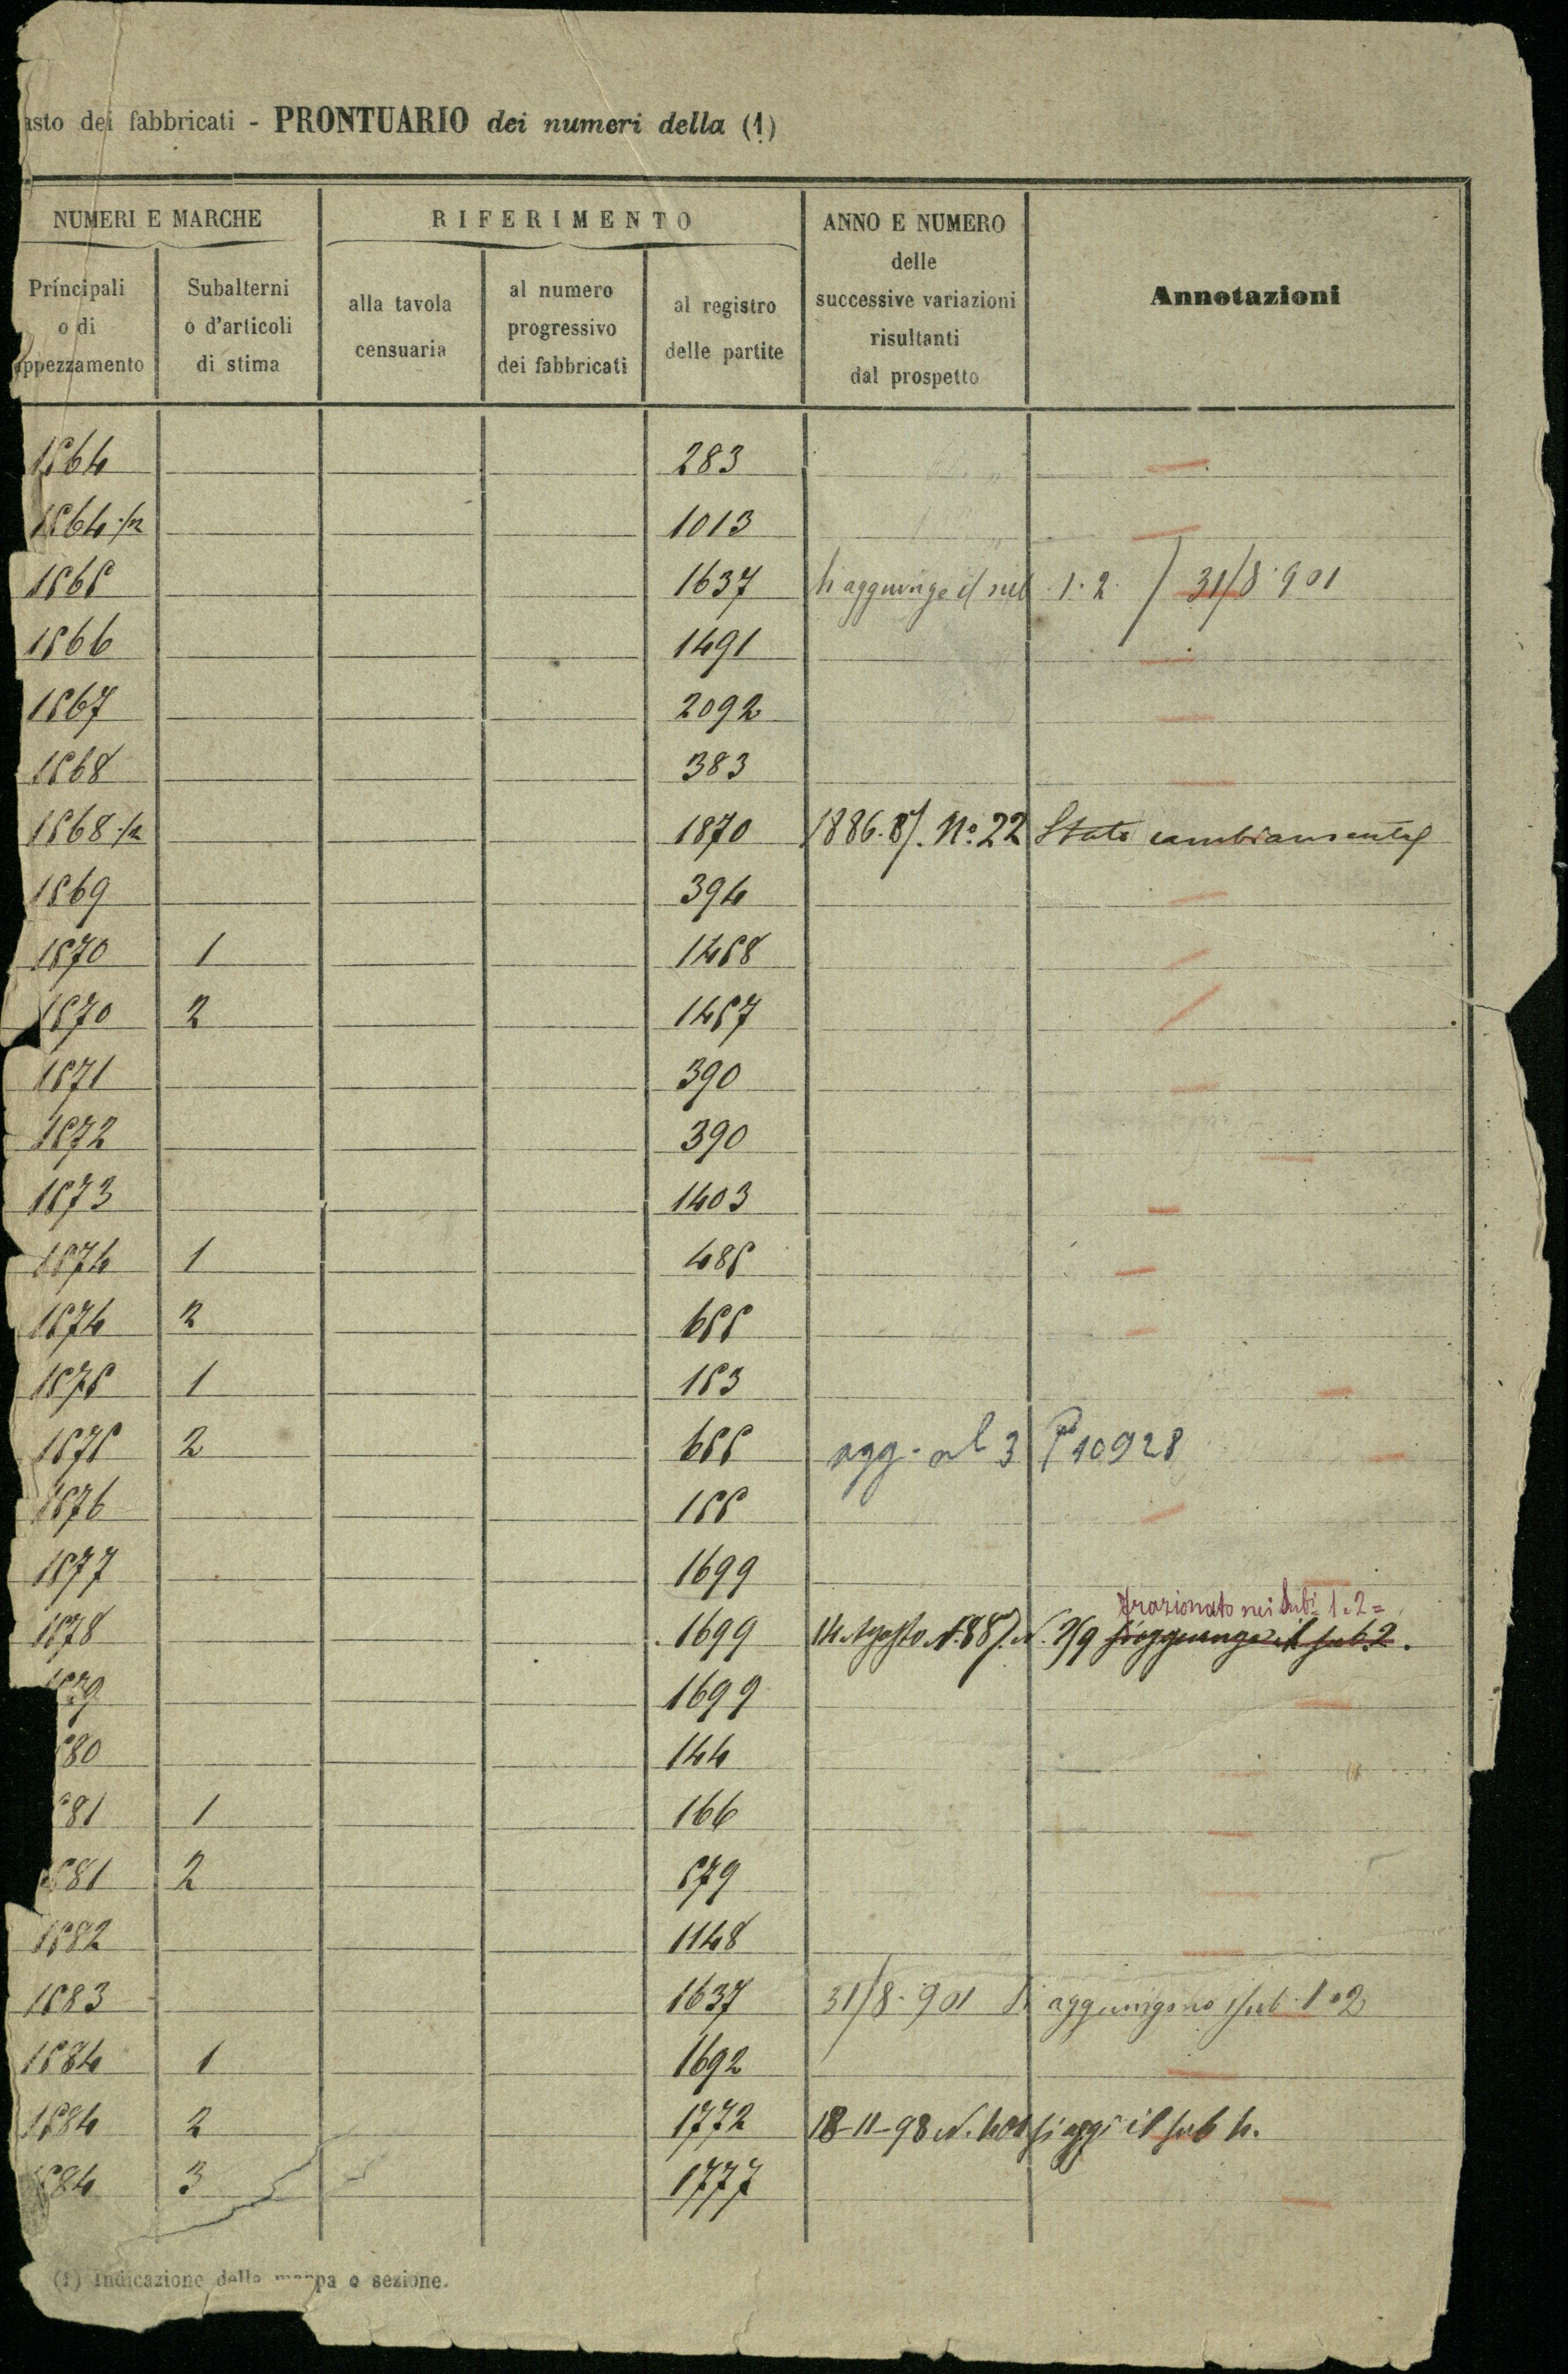 asto dei fabbricati - PRONTUARIO dei numeri della (1)
NUMERI E MARCHE
RIFERIMENTO
ANNO E NUMERO
delle
successive variazioni
risultanti
dal prospetto
Annotazioni
Principali
o di
appezzamento
Subalterni
o d'articoli
di stima
alla tavola
censuaria
al numero
progressivo
dei fabbricati
al registro
delle partite
1564 283
1564/2 1013
1565 1637 Si aggiunge il sub 1.2. / 31/8.901
1566 1491
1567 2092
1568 383
1568/2 1870 1886.87. N.º 22 Stato
1569 394
1570 1 1458
1570 2 1457
1571 390
1572 390
1573 1403
1574 1 485
1574 2 655
1575 1 153
1575 2 655 agg. al 3 P 10928
1576 155
1577 1699
frazionato nei Subi 1.2=
1578 1699 14 Agosto N. si aggiunge il sub 2.
579 1699
580 144
581 1 166
581 2 579
1582 1148
1583 1637 31/8.901 Si aggiungono i sub. 1 e 2
1584 1 1692
1584 2 1772 18-11-98 N. 401 si agg. il sub 4.
584 3 1777
(1) Indicazione della mappa o sezione.